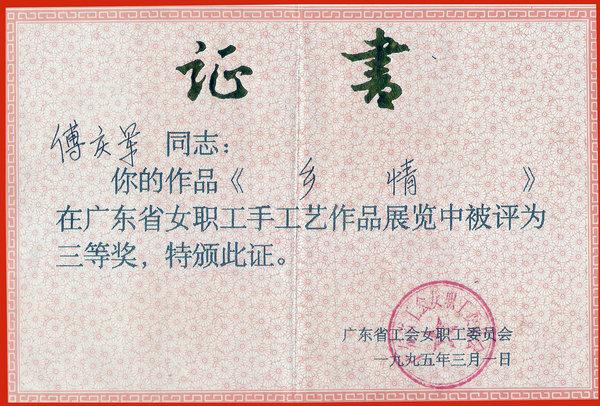 证 書
傅庆军 同志：
你的作品《 乡 情 》
在广东省女职工手工艺作品展览中被评为
三等奖，特颁此证。
广东省工会女职工委员会
一九九五年三月一日